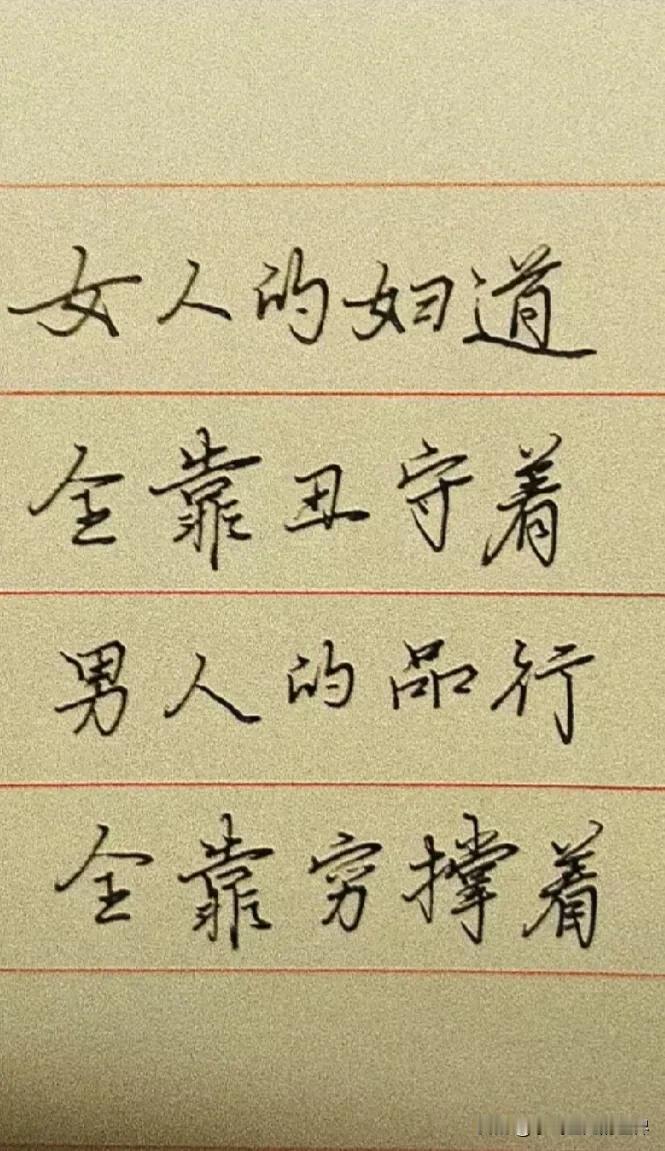 女人的妇道
全靠丑守着
男人的品行
全靠穷撑着